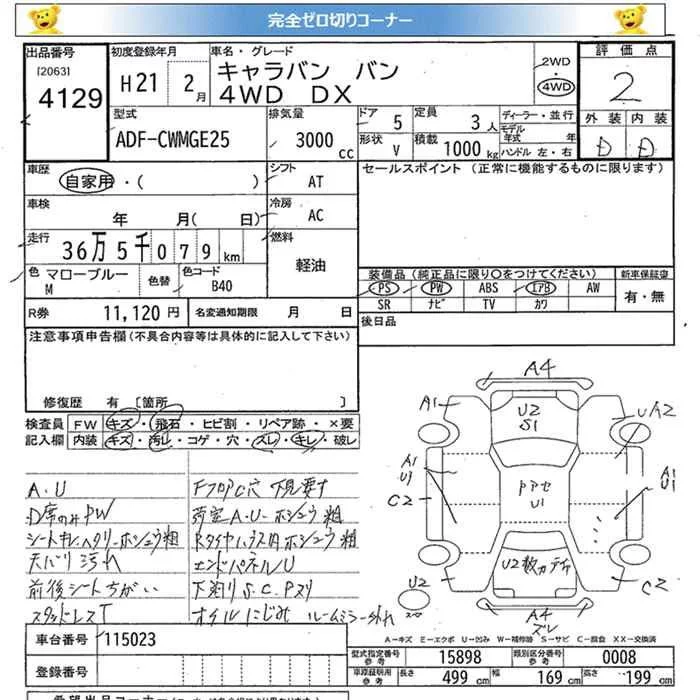 完全ゼロ切りコーナー
出品番号
[2063]
4129
初度登録年月
H21 2月
車名・グレード
キャラバン バン
4WD DX
2WD
4WD
評価点
2
外装 内装
D D
型式
ADF-CWMGE25
排気量
3000 cc
ドア 5
形状 V
定員 3人
積載 1000kg
ディーラー・並行
モデル年式 年
ハンドル 左・右
車歴
自家用・( )
シフト AT
セールスポイント (正常に機能するものに限ります)
車検
年 月( 日)
冷房 AC
走行
36万5千079km
燃料
軽油
色 マローブルーM
色替
色コード B40
装備品(純正品に限り○をつけてください)
PS PW ABS エアB AW
SR ナビ TV カワ
新車保証書
有・無
R券 11,120円
名変通知期限 月 日
後日品
注意事項申告欄(不具合内容等は具体的に記入して下さい)
修復歴 有 [箇所 ]
検査員記入欄
FW キズ・飛石・ヒビ割・リペア跡・×要
内装 キズ・汚レ・コゲ・穴・スレ・キレ・破レ
A.U
D席のみPW
シートキレ・ヘタリ・ホシュウ粗
天バリ汚れ
前後シートちがい
スタッドレスT
FフロアC穴 下見要す
荷室A.U-ホシュウ粗
Rタイヤハウス内ホシュウ粗
エンドパネルU
下廻りS.C.Pスリ
オイルにじみ ルームミラー外れ
A4
A1
U2
S1
A2
A1
U1
C2
A1
U1
U2
C2
A4
ズレ
A-キズ E-エクボ U-凹み W-補修跡 S-サビ C-腐食 XX-交換済
車台番号 115023
登録番号
型式指定番号 参考 15898
類別区分番号 参考 0008
車庫証明用 参考 長さ 499cm 幅 169cm 高さ 199cm
希望出品コーナー